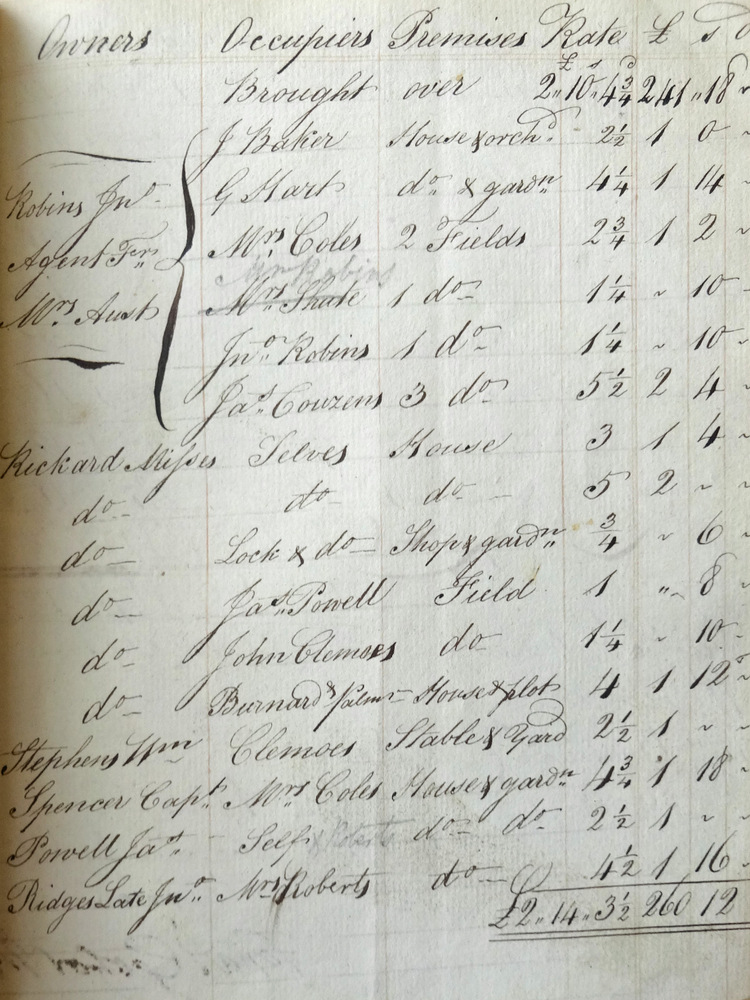 Owners Occupiers Premises Rate £ s d
£ s d
Brought over 2,,10,,4¾ 241,,18 ~
J Baker House & orchd. 2½ 1 0 -
Robins Jno. G Hart do. & gardn. 4¼ 1 14 -
Agent For Mrs. Coles 2 Fields 2¾ 1 2 -
Mrs. Aust Mrs. Shate 1 do 1¼ ~ 10 -
Robins
Jno. Robins 1 do 1¼ ~ 10 -
Jas. Couzens 3 do 5½ 2 4 -
Rickard Misses Selves House 3 1 4 ~
do do do 5 2 ~ ~
do Lock & do Shop & gardn. ¾ ~ 6 ~
do Jas. Powell Field 1 ,, 8 ~
do John Clemoes do 1¼ ~ 10 ~
do Burnard & House & plot 4 1 12 ~
Stephens Wm Clemoes Stable & Yard 2½ 1 ~ ~
Spencer Capt. Mrs Coles House & gardn. 4¾ 1 18 ~
Powell Jas. Self & Roberts do do 2½ 1 ~ ~
Ridges Late Jno. Mrs Roberts do 4½ 1 16 ~
£2,,14,,3½ 260 12